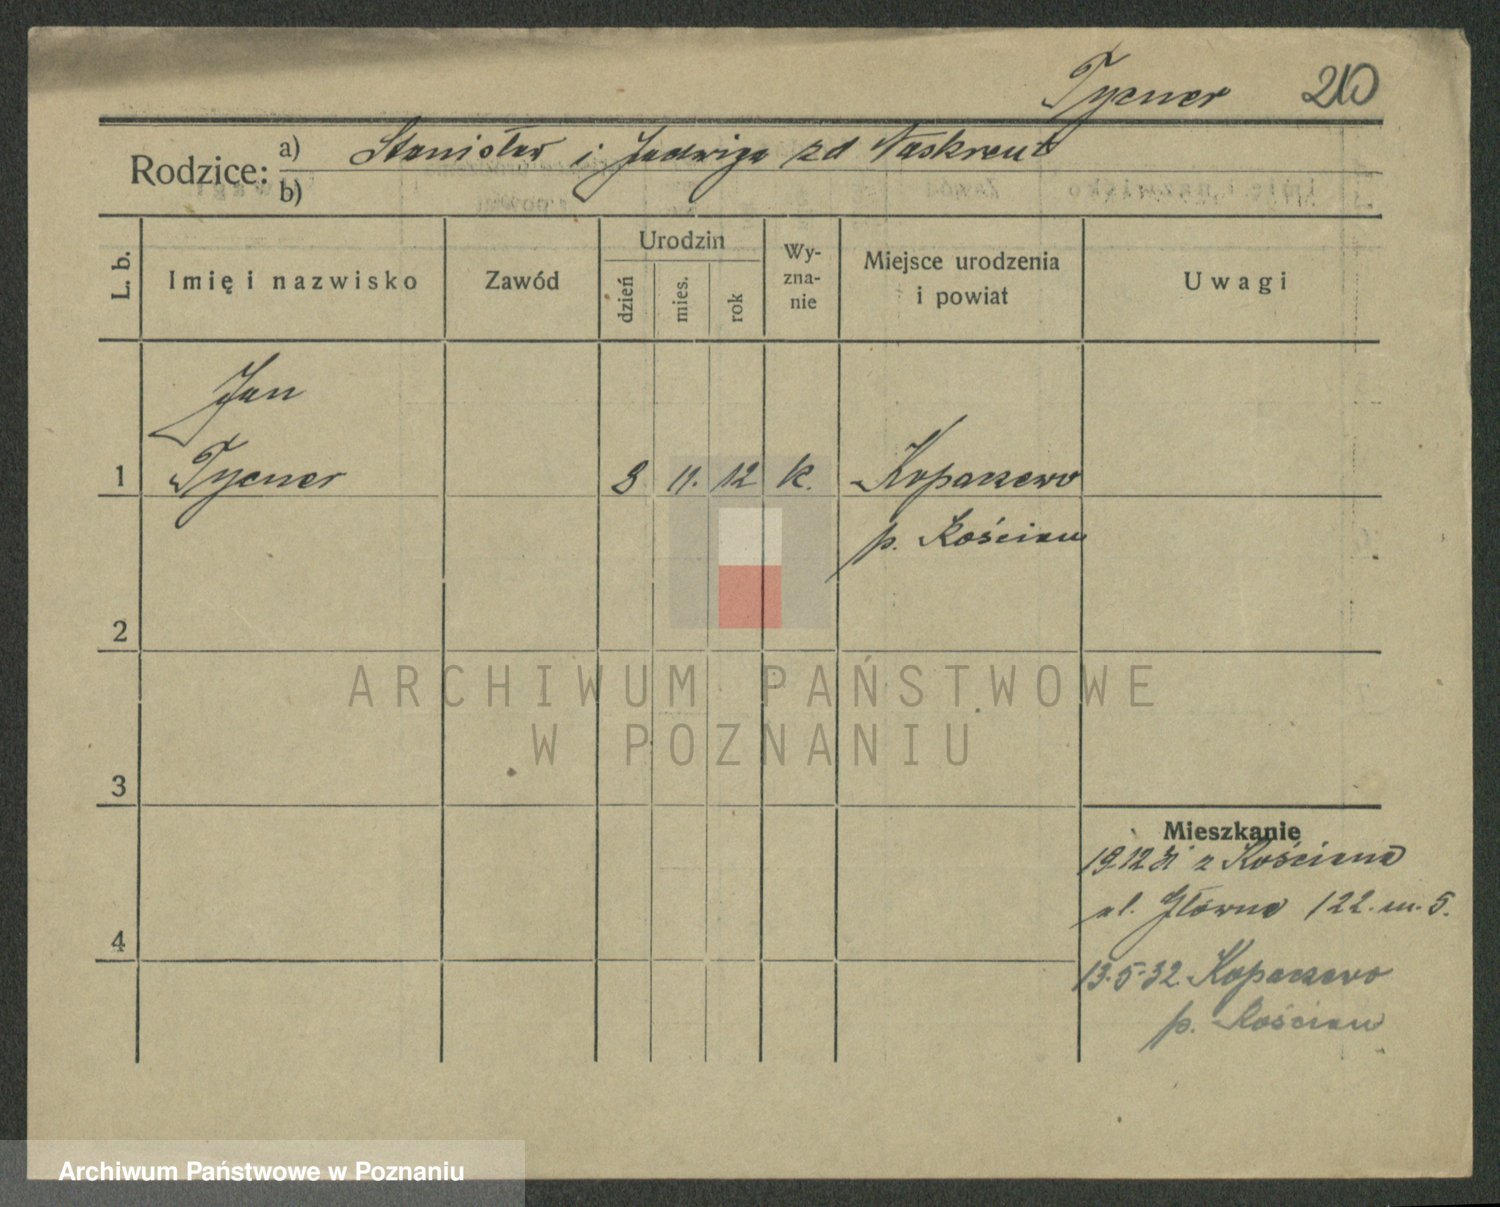 Tycner 210
Rodzice: a) Stanisław i Jadwiga zd Naskrent
b)
L. b.
Imię i nazwisko
Zawód
Urodzin
dzień
mies.
rok
Wy-
zna-
nie
Miejsce urodzenia
i powiat
Uwagi
Jan
1 Tycner 3 11. 12 k. Kopaszewo
p. Kościan
2
ARCHIWUM PAŃSTWOWE
W POZNANIU
3
Mieszkanie
19.12.31 z Kościana
ul. Główna 122. m. 5.
4
13.5.32. Kopaszewo
p. Kościan
Archiwum Państwowe w Poznaniu